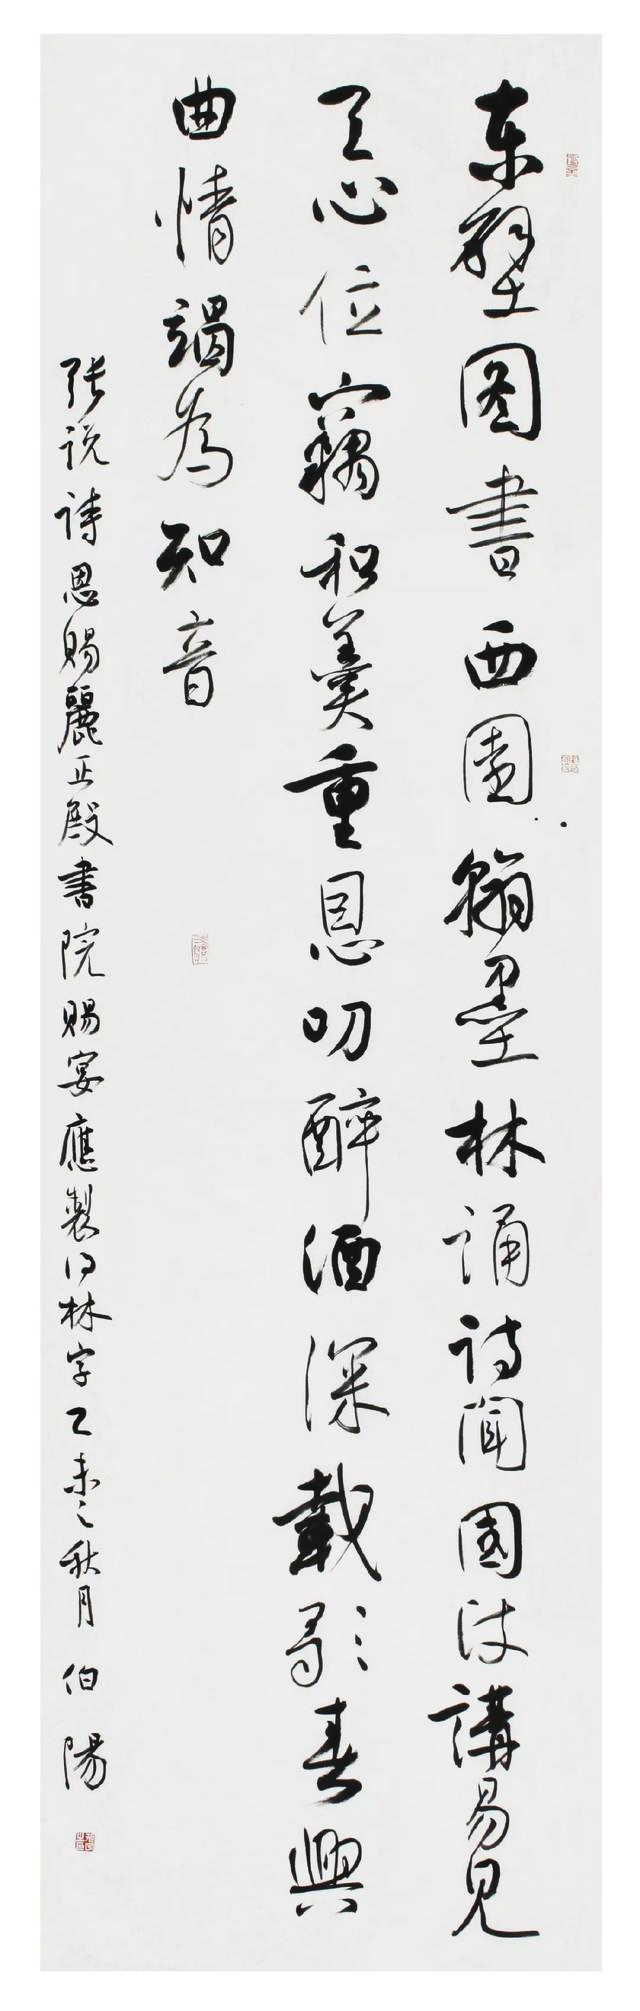 东壁图書西園翰墨林誦詩聞国政講易見
天心位竊和羹重恩叨醉酒深載歌春興
曲情竭為知音
张说詩恩賜麗正殿書院賜宴應製得林字乙未之秋月伯陽